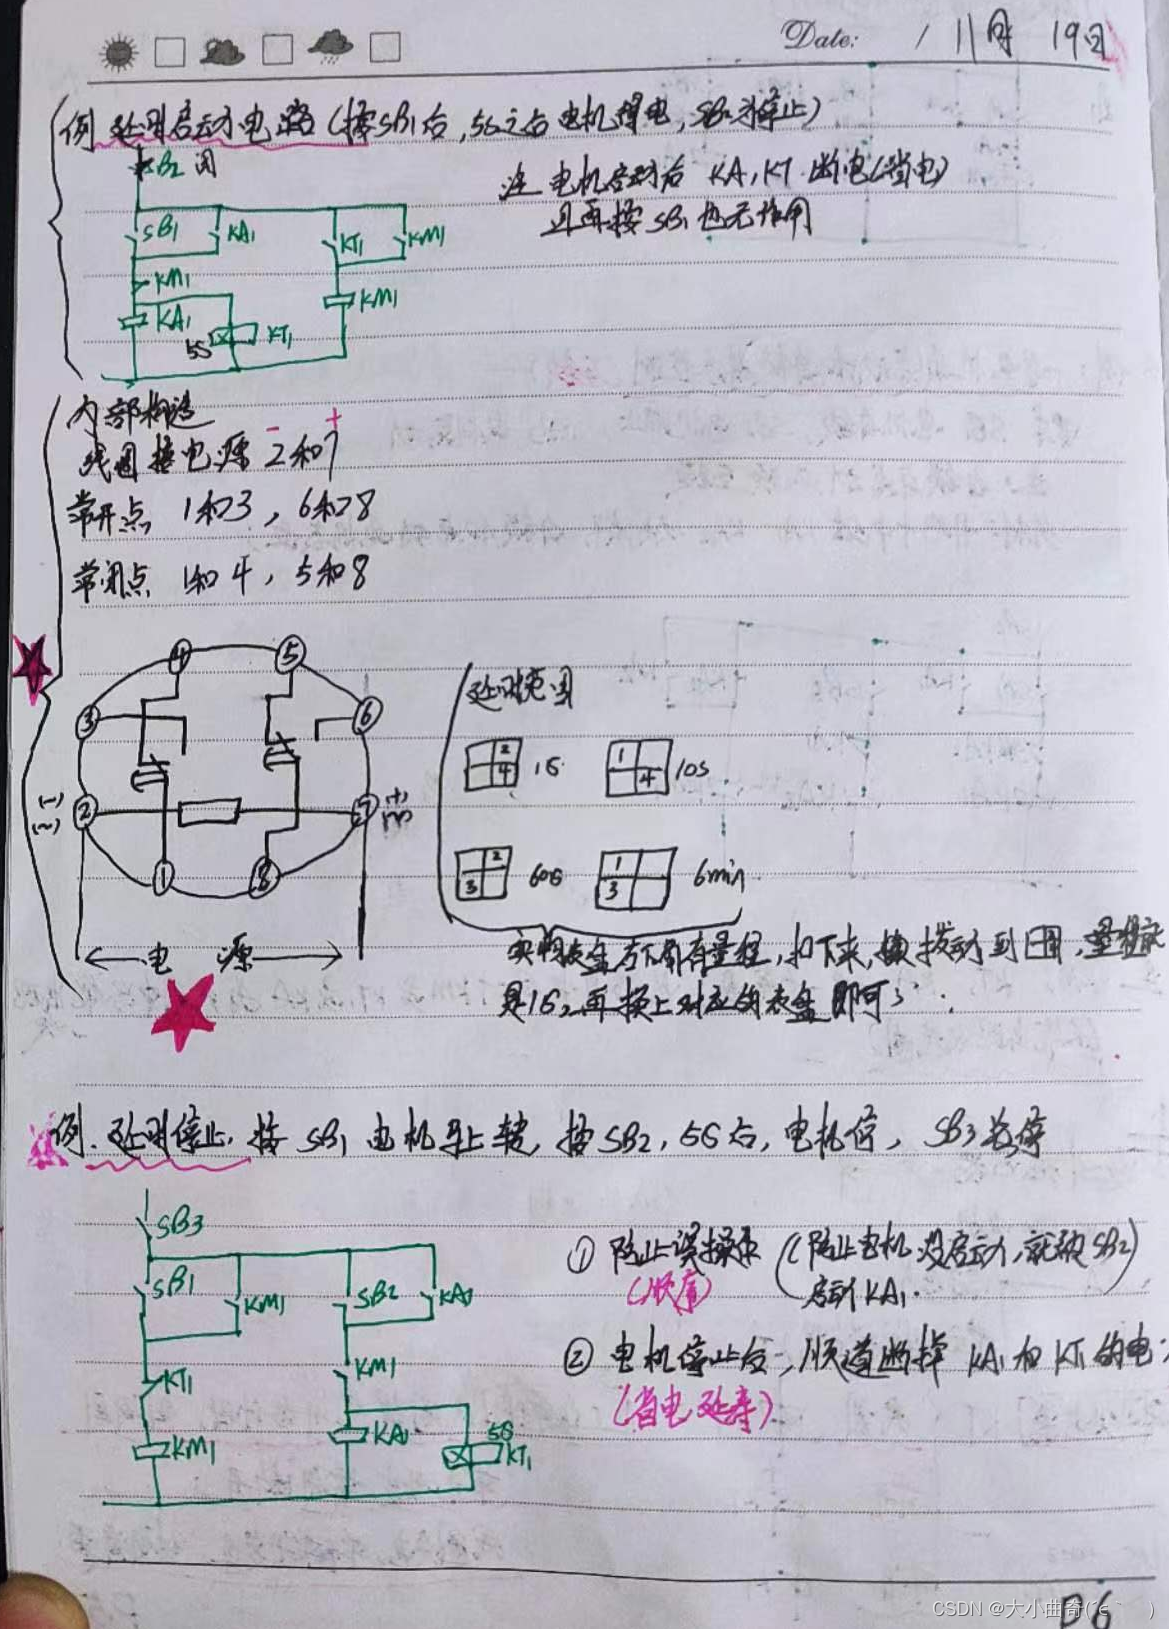 Date: / 11月 19日
例 延时启动电路(按SB1后,5S之后电机得电,SB2为停止)
SB2 闭
注 电机启动后 KA1,KT 断电(省电)
且再按 SB1 也无作用
SB1 KA1 KT1 KM1
KM1
KM1
KA1 5S KT1
内部构造
- +
线圈接电源 2和7
常开点 1和3, 6和8
常闭点 1和4, 5和8
4 5
3 6
(-) (~) 2 7 (+) (~)
1 8
←电 源→
延时范围
2 4 1S 1 4 10S
2 3 60S 1 3 6min
实物表盘右下角有量程,扣下来,拨动到,量程就
是1S,再换上对应的表盘即可
例. 延时停止, 按 SB1 电机马上转, 按SB2, 5S后, 电机停, SB3总停
SB3
SB1 KM1 SB2 KA1
KT1 KM1
KM1 KA1 5S KT1
① 防止误操作 (防止电机没启动,就被SB2
(顺序) 启动KA1.)
② 电机停止后, 顺道断掉 KA1和 KT1的电
(省电延寿)
P6
CSDN @大小曲奇(